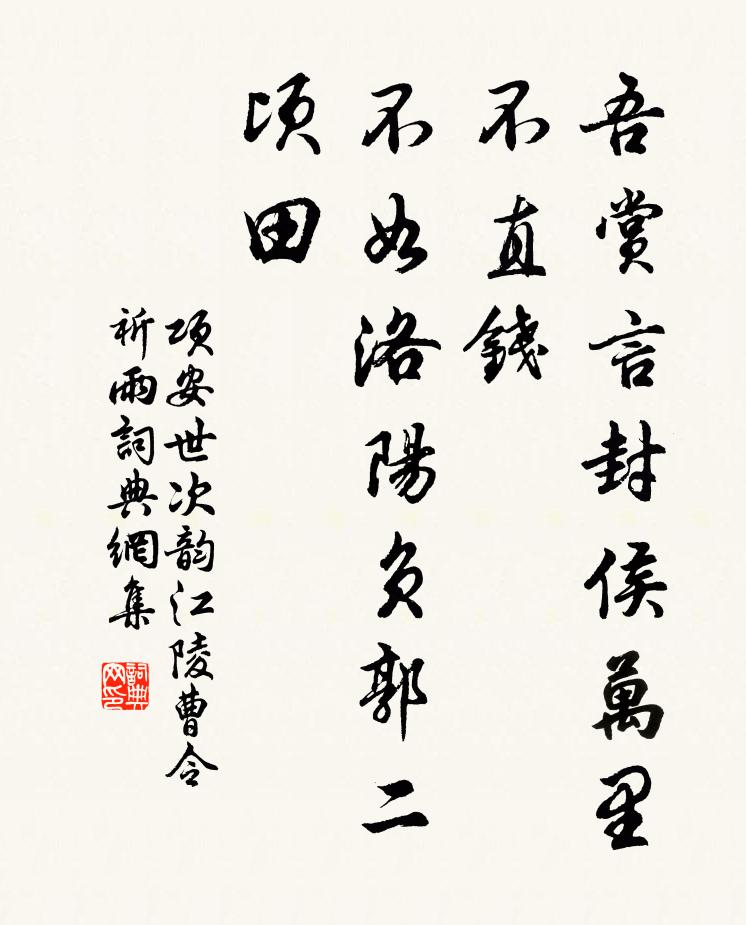 吾賞言封侯萬里
不直錢
不如洛陽負郭二
頃田
項安世次韵江陵曹令
祈雨詞典網集
詞典網印